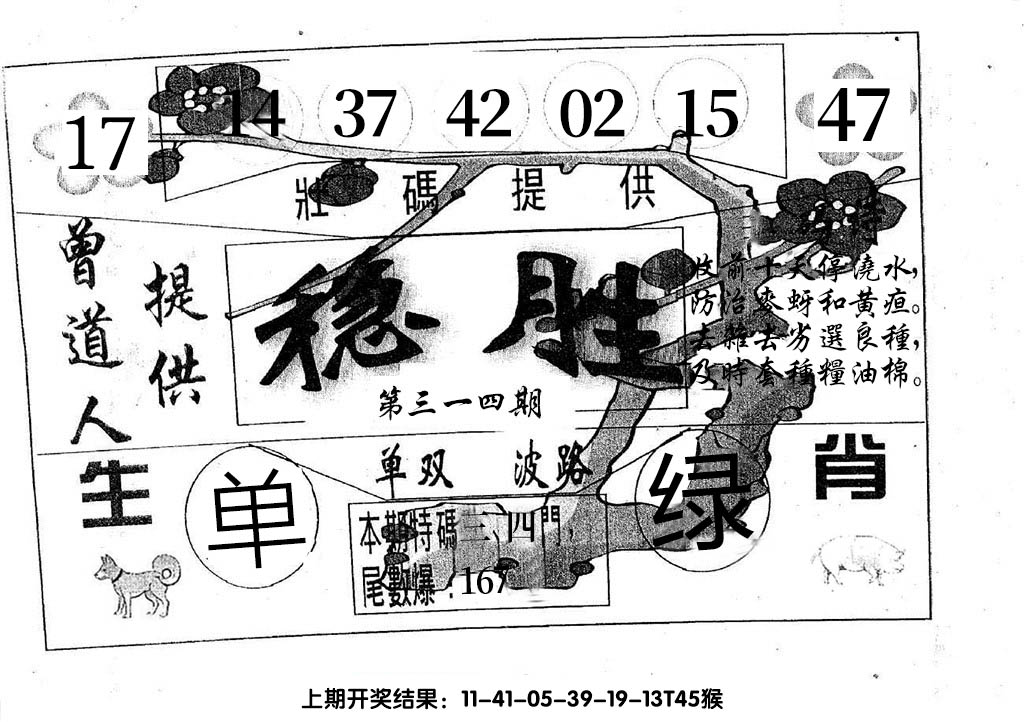 17 14 37 42 02 15 47
壯碼提供
曾道人
提供
稳胜
第三一四期
收前十天停澆水，
防治麥蚜和黄疸。
去雜去劣選良種，
及時套種糧油棉。
生肖
单双 波路
单
绿
本期特碼三、四門，
尾數爆：167
上期开奖结果：11-41-05-39-19-13T45猴